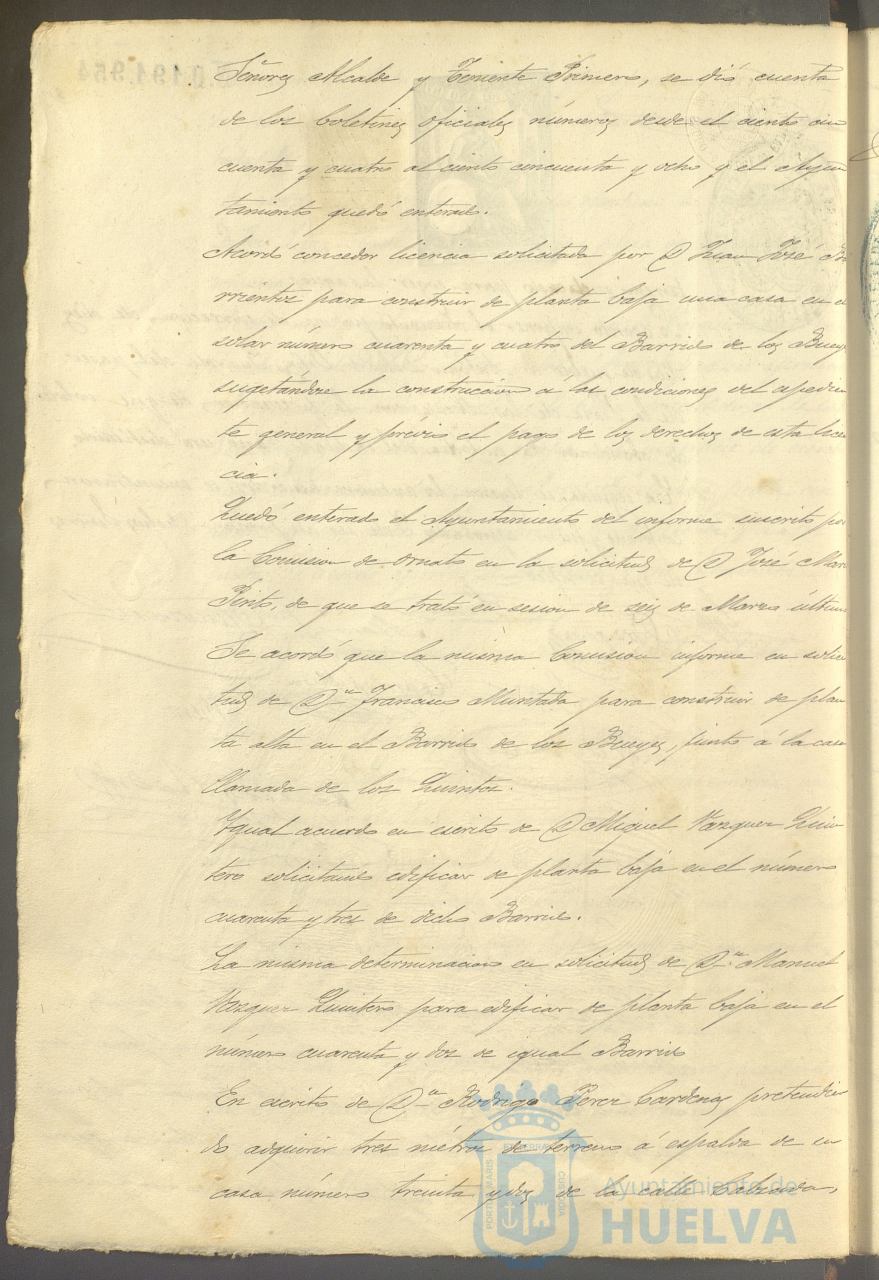 Señores Alcalde y Teniente Primero, se dió cuenta
de los boletines oficiales números desde el ciento cin
cuenta y cuatro al ciento cincuenta y ocho y el Ayun
tamiento quedó enterado.
Acordó conceder licencia solicitada por D Juan José Ba
rrientos para construir de planta baja una casa en el
solar número cuarenta y cuatro del Barrio de los Bueyes
sugetándose la construccion á las condiciones del espedien
te general y previo el pago de los derechos de esta licen
cia.
Quedó enterado el Ayuntamiento del informe suscrito por
la Comision de Ornato en la solicitud de D José Maria
Pinto, de que se trató en sesion de seis de Marzo último
Se acordó que la misma Comision informe en solici
tud de D.n Francisco Muntada para construir de plan
ta alta en el Barrio de los Bueyes, junto á la casa
llamada de los Quintos.
Ygual acuerdo en escrito de D Miguel Vazquez Quin
tero solicitando edificar de planta baja en el número
cuarenta y tres de dicho Barrio.
La misma determinacion en solicitud de D.n Manuel
Vazquez Quintero para edificar de planta baja en el
número cuarenta y dos de igual Barrio
En escrito de D.n Rodrigo Perez Cardenas pretendien
do adquirir tres métros de terreno á espalda de su
casa número treinta y dos de la calle Calzada,
Ayuntamiento de
HUELVA